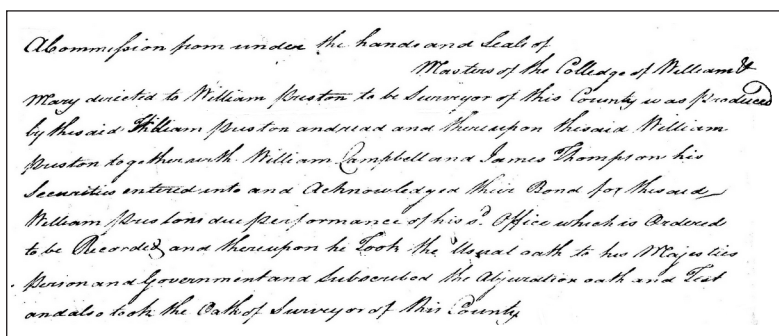 A Commission from under the hands and Seals of
Masters of the Colledge of William &
Mary directed to William Preston to be Surveyor of this County was Produced
by the said William Preston and read and thereupon the said William
Preston together with William Campbell and James Thompson his
Securities entered into and Acknowledged their Bond for the said
William Prestons due performance of his sd. Office which is Ordered
to be Recorded and thereupon he Took the Usual oath to his Majesties
Person and Government and Subscribed the Abjuration oath and Test
and also took the Oath of Surveyor of this County